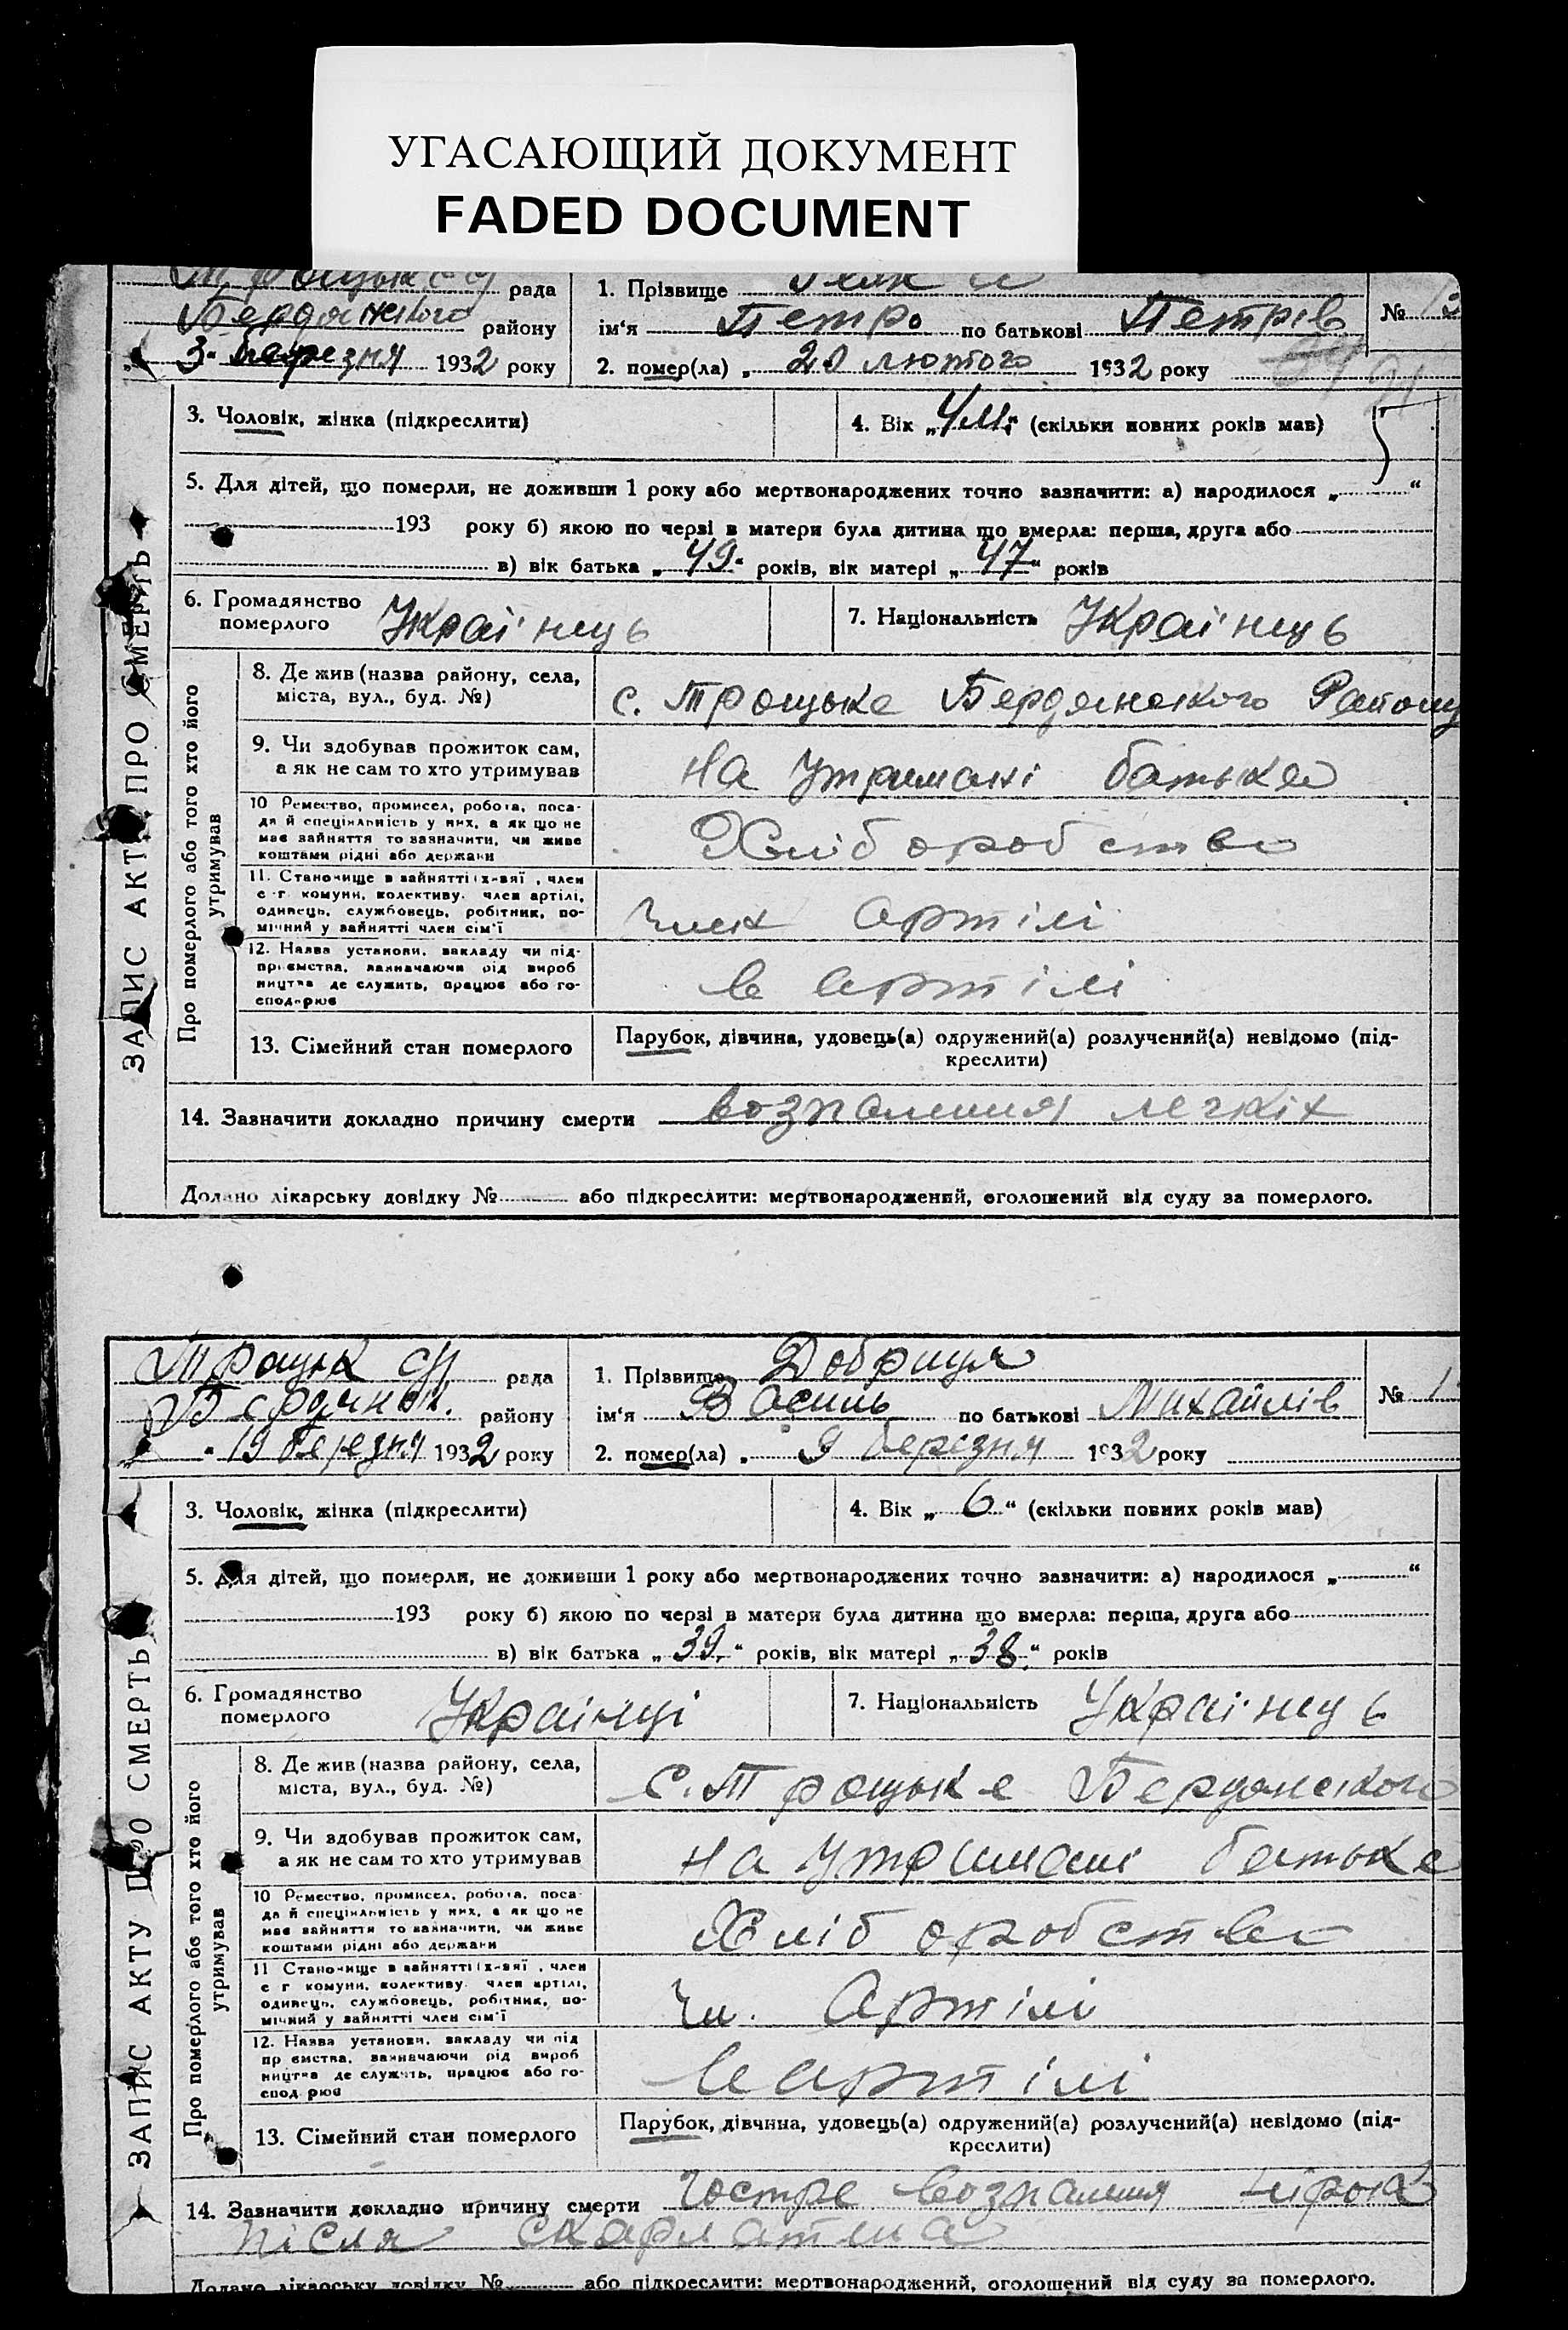 УГАСАЮЩИЙ ДОКУМЕНТ
FADED DOCUMENT
рада
Бердянського району
3 березня 1932 року
1. Прізвище
ім‘я Петро по батькові Петрів
2. помер(ла) „ 20 лютого 1932 року
№ 13
3. Чоловік, жінка (підкреслити)
4. Вік „4 м.“ (скільки повних років мав)
5. Для дітей, що померли, не доживши 1 року або мертвонароджених точно зазначити: а) народилося „ “
193 року б) якою по черзі в матери була дитина що вмерла: перша, друга або
в) вік батька „49“ років, вік матері „47“ років
6. Громадянство померлого Україиець
7. Національність Україиець
ЗАПИС АКТУ ПРО СМЕРТЬ
Про померлого або того хто його утримував
8. Де жив (назва району, села,
міста, вул., буд. №)
с. Троцьке Бердянського Району
9. Чи здобував прожиток сам,
а як не сам то хто утримував
на утримані батька
10 Ремество, промисел, робота, поса-
да й спеціяльність у них, а як що не
має зайняття то зазначити, чи живе
коштами рідні або держави
Хліборобство
11. Становище в зайнятті їх-зяї , член
с г. комуни, колективу. член артілі,
одинець, службовець, робітник, по-
мічний у зайнятті член сім‘ї
Член Артілі
12. Назва установи, закладу чи під-
приємства, зазначаючи рід вироб
ництва де служить, працює або го-
сподарює
в артілі
13. Сімейний стан померлого
Парубок, дівчина, удовець(а) одружений(а) розлучений(а) невідомо (під-
креслити)
14. Зазначити докладно причину смерти возпаления легкіх
Додано лікарську довідку № або підкреслити: мертвонароджений, оголошений від суду за померлого.
Троцьк с/р рада
Бердянськ. району
„ 19 березня 1932 року
1. Прізвище Добриця
ім‘я Василь по батькові Михайлів
2. помер(ла) „ 9 березня 1932 року
№ 1
3. Чоловік, жінка (підкреслити)
4. Вік „ 6 “ (скільки повних років мав)
5. Для дітей, що померли, не доживши 1 року або мертвонароджених точно зазначити: а) народилося „ “
193 року б) якою по черзі в матери була дитина що вмерла: перша, друга або
в) вік батька „39“ років, вік матері „38“ років
6. Громадянство померлого Українці
7. Національність Україиець
ЗАПИС АКТУ ПРО СМЕРТЬ
Про померлого або того хто його утримував
8. Де жив (назва району, села,
міста, вул., буд. №)
с. Троцьке Бердянського
9. Чи здобував прожиток сам,
а як не сам то хто утримував
на утримані батька
10 Ремество, промисел, робота, поса-
да й спеціяльність у них, а як що не
має зайняття то зазначити, чи живе
коштами рідні або держави
Хліборобство
11 Становище в зайнятті їх-зяї , член
с г комуни, колективу. член артілі,
одинець, службовець, робітник, по-
мічний у зайнятті член сім‘ї
Чл. Артілі
12. Назва установи, закладу чи під
пр ємства, зазначаючи рід вироб
ництва де служить, працює або го-
спод рює
в артілі
13. Сімейний стан померлого
Парубок, дівчина, удовець(а) одружений(а) розлучений(а) невідомо (під-
креслити)
14. Зазначити докладно причину смерти Гостре возпалення нірок
після скарлатина
Додано лікарську довідку № або підкреслити: мертвонароджений, оголошений від суду за померлого.